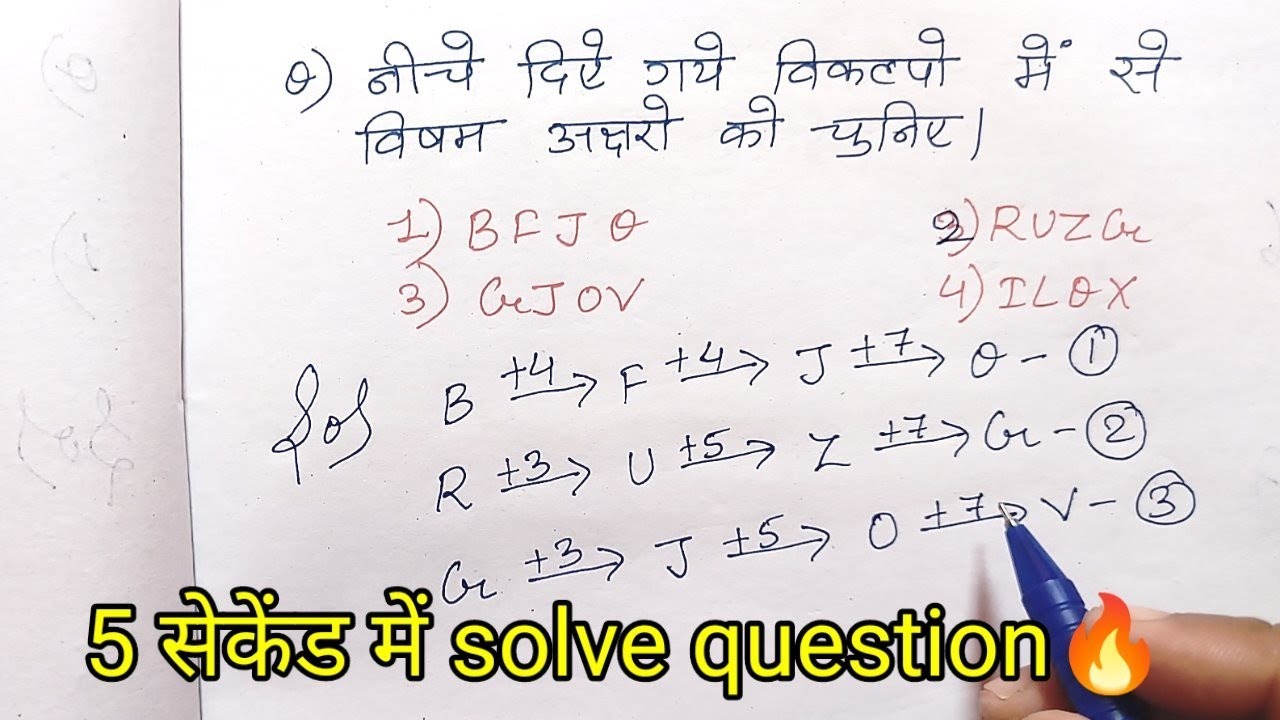 Q) नीचे दिऐ गये विकल्पो में से
विषम अक्षरो को चुनिए।
1) B F J Q 2) R U Z G
3) G J O V 4) I L Q X
Sol B +4→ F +4→ J +7→ Q - ①
R +3→ U +5→ Z +7→ G - ②
G +3→ J +5→ O +7→ V - ③
5 सेकेंड में solve question🔥